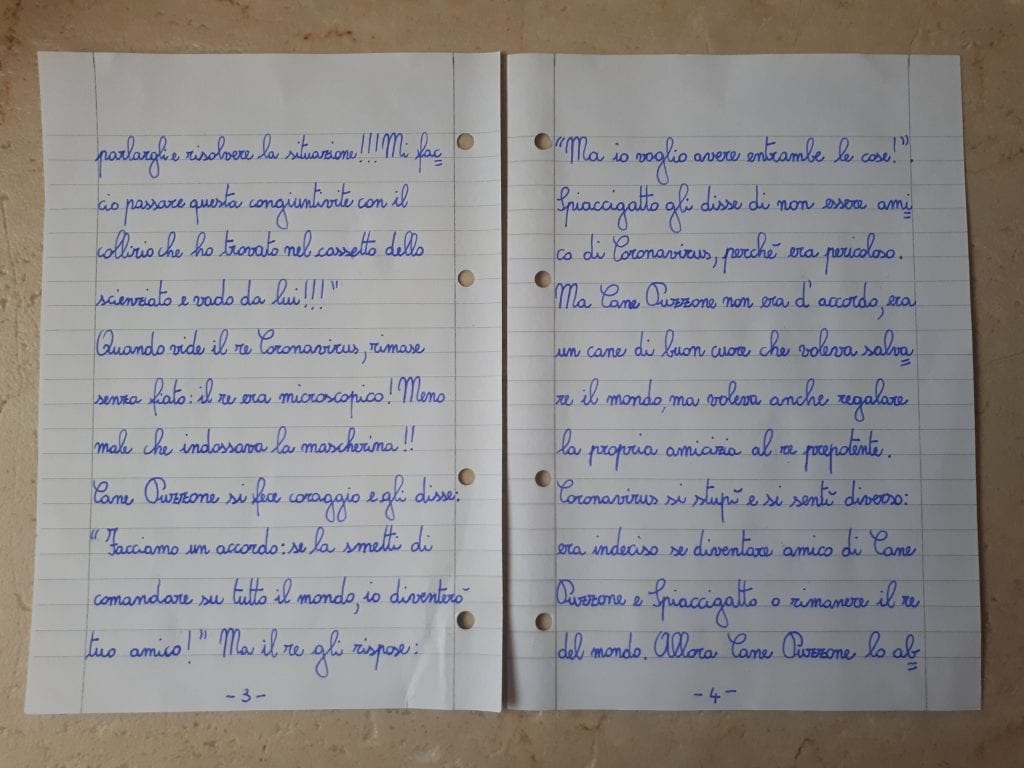 parlargli e risolvere la situazione!!! Mi fac=
cio passare questa congiuntivite con il
collirio che ho trovato nel cassetto dello
scienziato e vado da lui!!!"
Quando vide il re Coronavirus, rimase
senza fiato: il re era microscopico! Meno
male che indossava la mascherina!!
Cane Puzzone si fece coraggio e gli disse:
"Facciamo un accordo: se la smetti di
comandare su tutto il mondo, io diventerò
tuo amico!" Ma il re gli rispose:
-3-
"Ma io voglio avere entrambe le cose!".
Spiaccigatto gli disse di non essere ami=
co di Coronavirus, perchē era pericoloso.
Ma Cane Puzzone non era d'accordo, era
un cane di buon cuore che voleva salva=
re il mondo, ma voleva anche regalare
la propria amicizia al re prepotente.
Coronavirus si stupī e si sentī diverso:
era indeciso se diventare amico di Cane
Puzzone e Spiaccigatto o rimanere il re
del mondo. Allora Cane Puzzone lo ab=
-4-